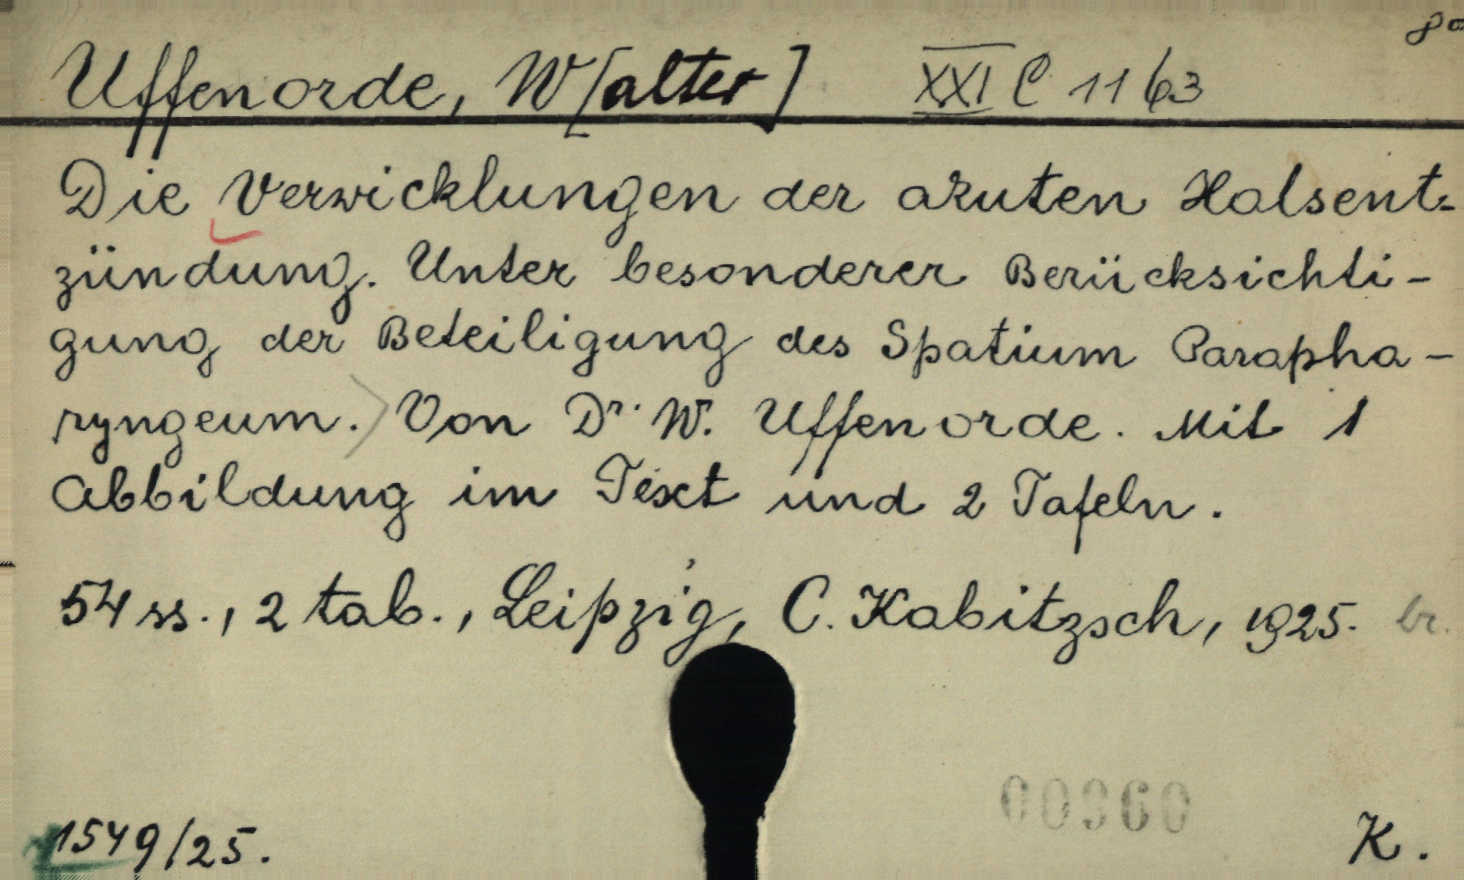 8°
Uffenorde, W[alter] XXI C 1163
Die Verwicklungen der akuten Halsent-
zündung. Unter besonderer Berücksichti-
gung der Beteiligung des Spatium Parapha-
ryngeum. Von Dr. W. Uffenorde. Mit 1
Abbildung im Text und 2 Tafeln.
54 ss., 2 tab., Leipzig, C. Kabitzsch, 1925. br.
00360
1549/25. K.